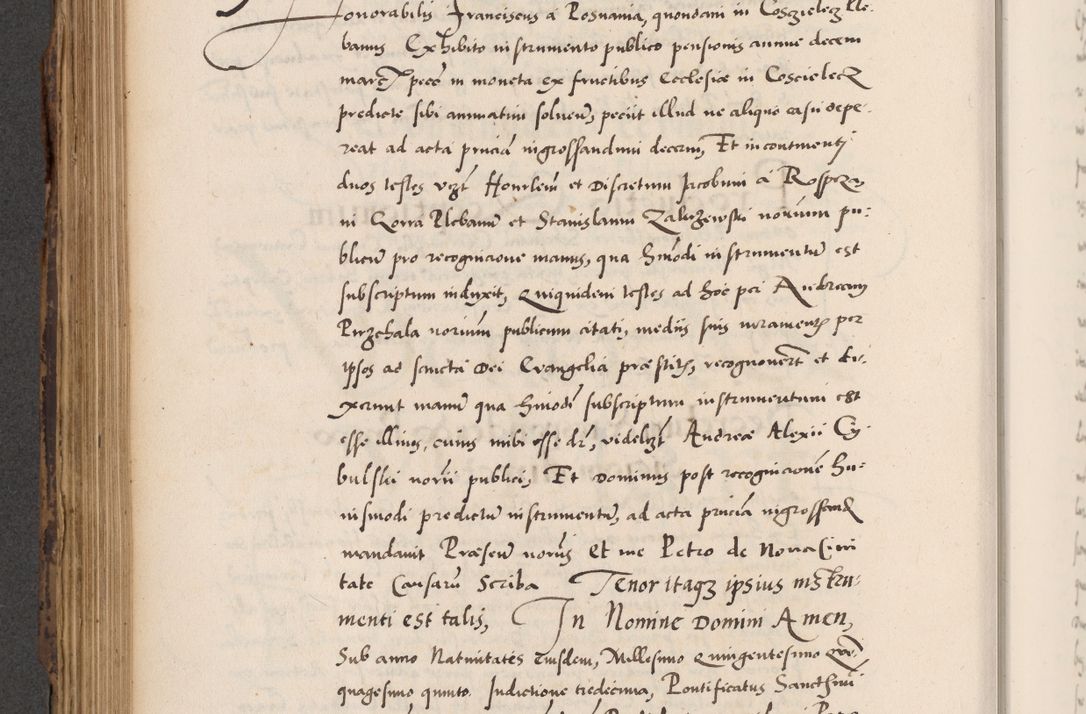 Honorabilis Franciscus a Posnania, quondam in Coszielecz ple-
banus Exhibito instrumento publico pensionis annue decem
marcarum pecunie in moneta ex fructibus Ecclesiæ in Coscielecz
predicte sibi annuatim solvendarum, peciit illud ne aliquo casu depe-
reat ad acta presencia ingrossandum decerni, Et incontinenti
duos testes videlicet Honorabilem et Discretum Jacobum a
in Plebanum et Stanislaum Zaluzewski notarium pu-
blicum pro recognicione manus, qua huiusmodi instrumentum est
subscriptum induxit, Quiquidem testes ad hoc per Andream
Przechala notarium publicum citati, mediis suis iuramentis per
ipsos ad sancta Dei Evangelia præstitis, recognoverunt et di-
xerunt manum qua huiusmodi subscriptum instrumentum est
esse illius, cuius inibi esse dicitur, videlicet Andreæ Alexii Cy-
bulski notarii publici, Et Dominus post recognicionem hu-
iusmodi predictum instrumentum, ad acta presencia ingrossandum
mandavit Præsentibus notariis Et me Petro de Nova Civi
tate Causarum Scriba Tenor itaque ipsius instru-
menti est talis, In Nomine Domini Amen,
Sub anno Nativitatis eiusdem, Millesimo Quingentesimo
quagesimo quinto. Indictione tredecima, Pontificatus Sanctissimi